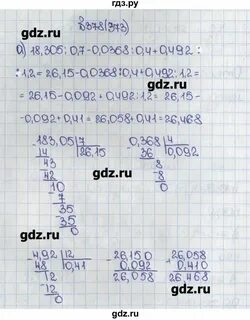 №378(373)
gdz.ru
gdz.ru
а) 18,305 : 0,7 - 0,0368 : 0,4 + 0,492 :
: 1,2 = 26,15 - 0,0368 : 0,4 + 0,492 : 1,2 =
gdz.ru gdz.ru
= 26,15 - 0,092 + 0,492 : 1,2 = 26,15 -
- 0,092 + 0,41 = 26,058 + 0,41 = 26,468
gdz.ru gdz.ru
183,05 7 0,368 4
14 26,15 36 0,092
43 8
42 8
10 0
7
35
35
0
gdz.ru gdz.ru
4,92 12 26,150 26,058
48 0,41 0,092 0,410
12 26,058 26,468
12
0
gdz.ru gdz.ru